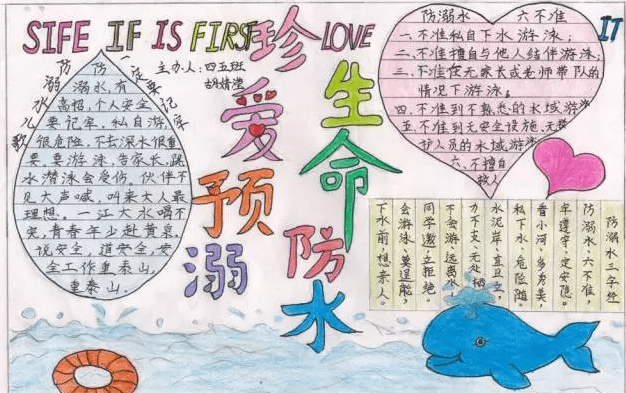 SIFE IF IS FIRST
LOVE
IT
珍爱生命
预防溺水
主办人:四五班
胡婧滢
防溺水歌
防一定要记牢
溺水,有
高招,个人安全
要记牢,私自游,
很危险,不去深水很重
要,要游泳,告家长,跳
水潜泳会受伤,伙伴不
见大声喊,叫来大人最
理想。一江大水喝不
完,青春年少赴黄泉,
说安全,道安全,安
全工作重泰山,
重泰山.
防溺水 六不准
一、不准私自下水游泳;
二、不准擅自与他人结伴游泳;
三、不准在无家长或老师带队的
情况下游泳。
四、不准到不熟悉的水域游泳
五、不准到无安全设施、无救
护人员的水域游泳
六、不擅自
救人
防溺水三字经
防溺水,六不准,
牢遵守,定安隐。
看小河,多秀美,
私下水,危险随。
水泥岸,直且立,
力不支,无处栖
不会游,远离水,
同学邀,立拒绝。
会游泳,莫逞能,
下水前,想亲人。